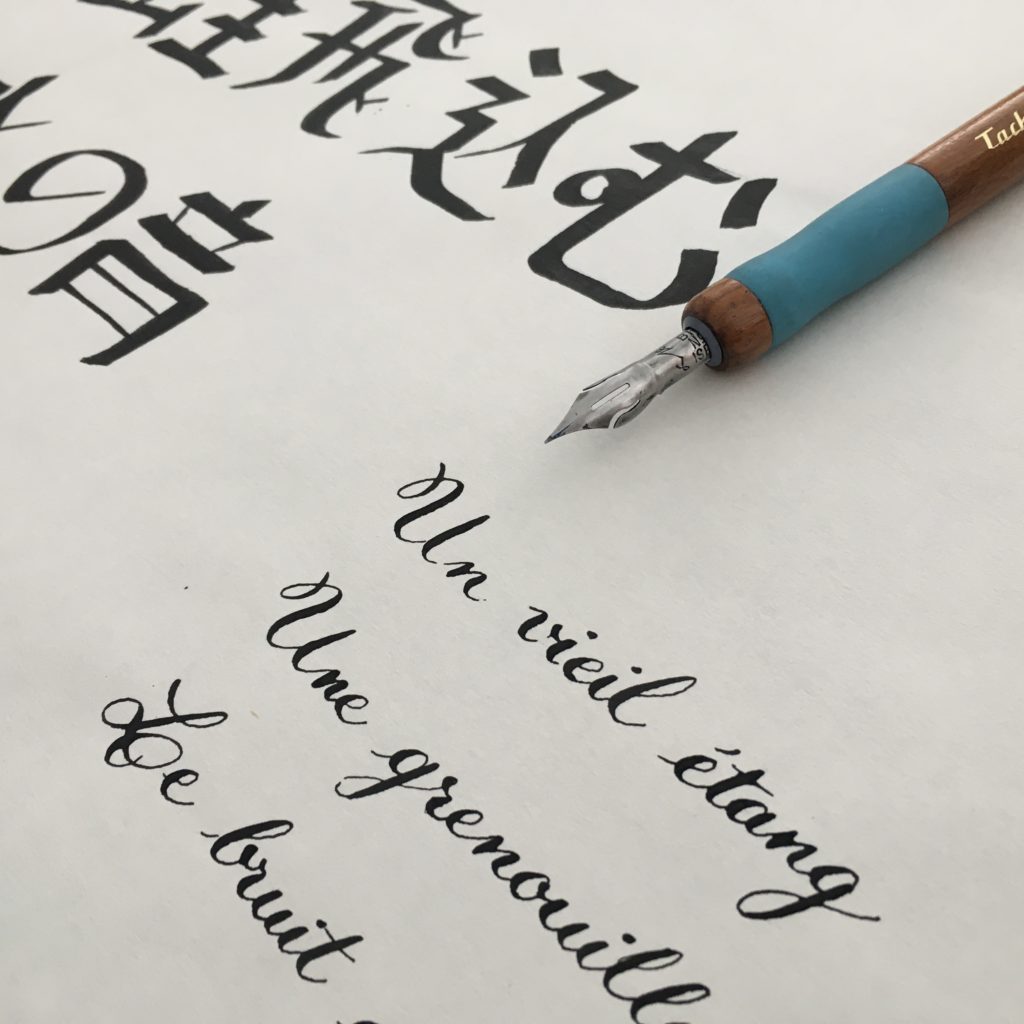 蛙飛込む
の音
Tach
Un vieil étang
Une grenouill
Le bruit